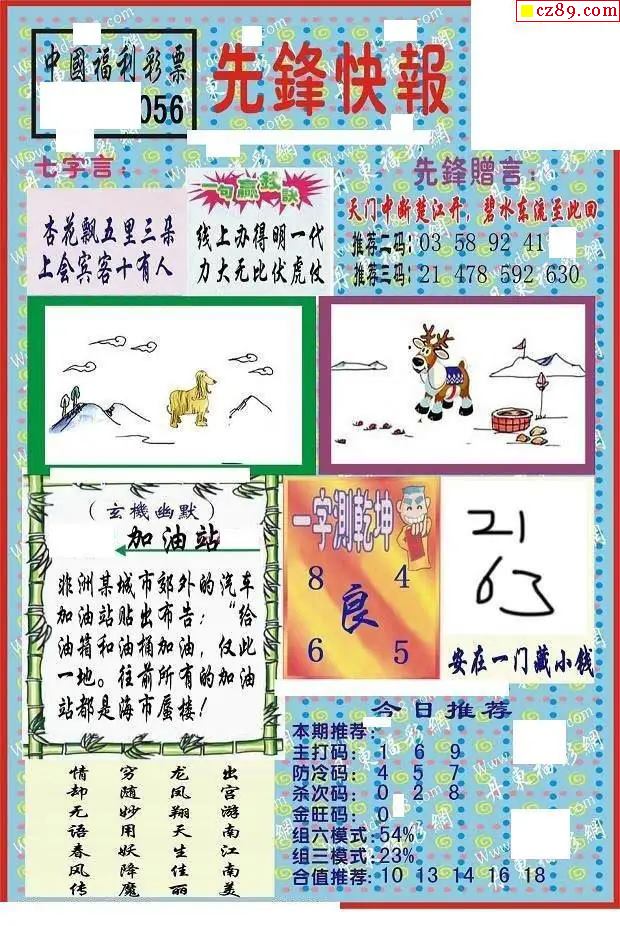 cz89.com
中國福利彩票
056
先鋒快報
七字言：
杏花飘五里三朵
上会宾客十有人
一句赢钱訣
线上办得明一代
力大无比伏虎仗
先鋒贈言：
天门中断楚江开，碧水东流至此回
推荐二码：03 58 92 41
推荐三码：21 478 592 630
（玄機幽默）
加油站
非洲某城市郊外的汽车
加油站贴出布告：“给
油箱和油桶加油，仅此
一地。往前所有的加油
站都是海市蜃楼！
一字測乾坤
8 4
良
6 5
21
63
安在一门藏小钱
情却无语春风传
穷随妙用妖降魔
龙凤翔天生佳丽
出宫游南江南美
今日推荐
本期推荐：
主打码：1 6 9
防冷码：4 5 7
杀次码：0 2 8
金旺码：0
组六模式：54%
组三模式：23%
合值推荐：10 13 14 16 18
丹東福彩網